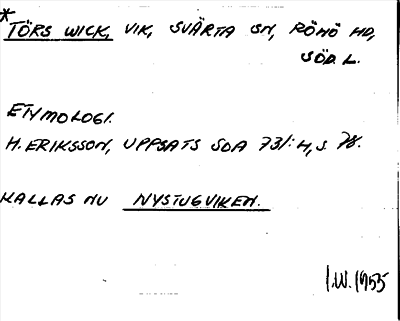 * TÖRS WICK, VIK, SVÄRTA SN, RÖNÖ HD,
SÖD. L.
ETYMOLOGI.
H. ERIKSSON, UPPSATS SOA 73/: 4, S 78.
KALLAS NU NYSTUGVIKEN.
I.W. 1955